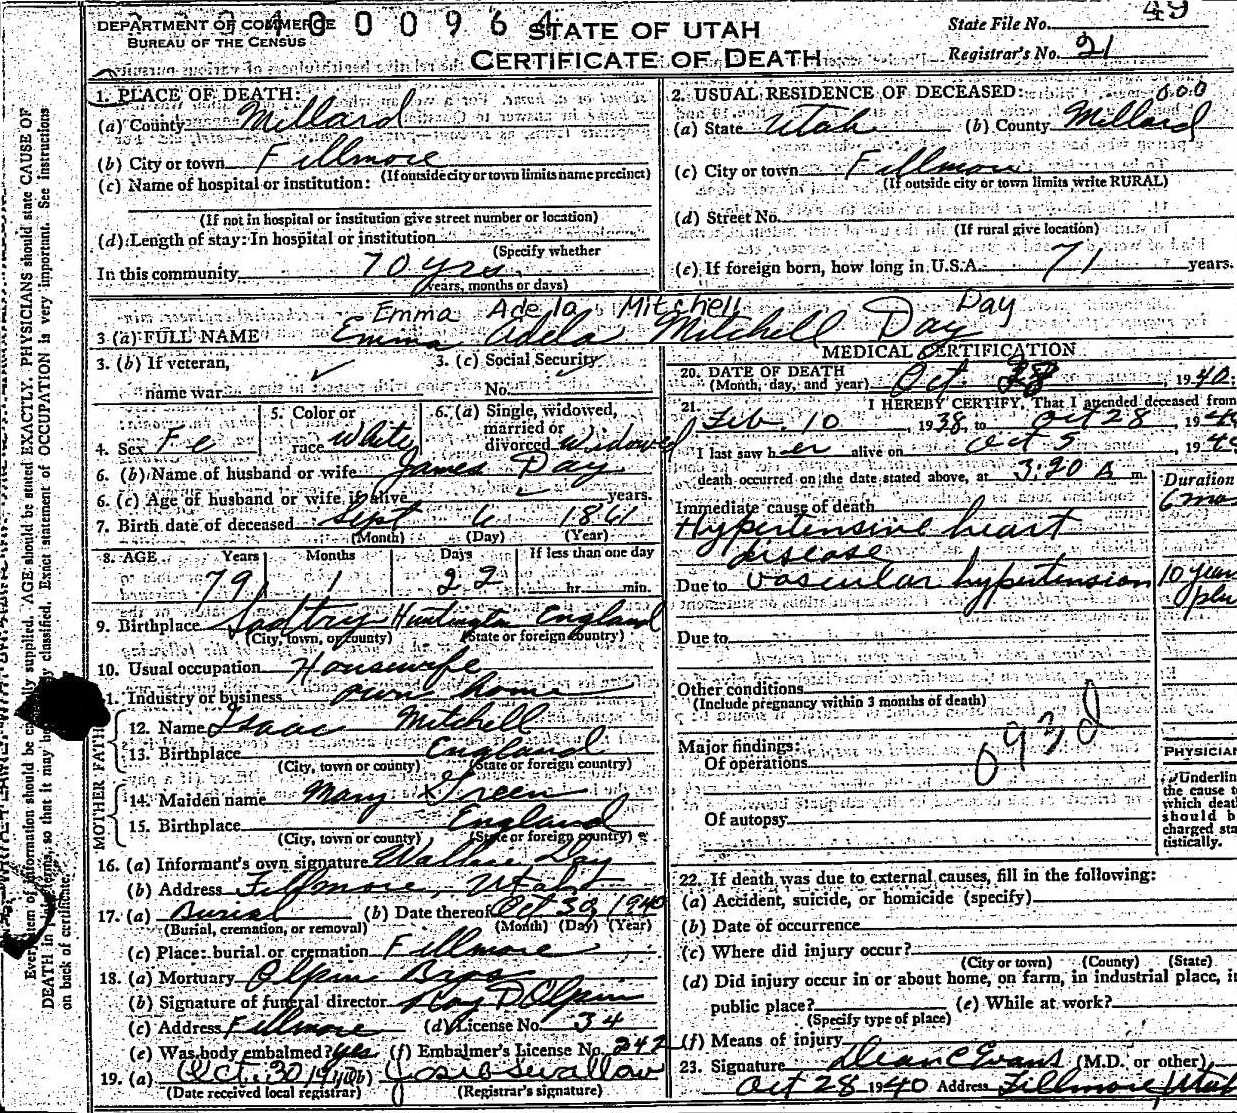 DEPARTMENT OF COMMERCE
BUREAU OF THE CENSUS
STATE OF UTAH
CERTIFICATE OF DEATH
State File No. 49
Registrar's No. 21
1. PLACE OF DEATH:
(a) County Millard
(b) City or town Fillmore
(If outside city or town limits name precinct)
(c) Name of hospital or institution:
(If not in hospital or institution give street number or location)
(d) Length of stay: In hospital or institution
(Specify whether
In this community 70 yrs.
years, months or days)
2. USUAL RESIDENCE OF DECEASED:
(a) State Utah (b) County Millard
(c) City or town Fillmore
(If outside city or town limits write RURAL)
(d) Street No.
(If rural give location)
(e) If foreign born, how long in U.S.A. 71 years.
Emma Adela Mitchell Day
3 (a) FULL NAME Emma Adela Mitchell Day
3. (b) If veteran,
name war
3. (c) Social Security
No.
4. Sex Fe
5. Color or
race White
6. (a) Single, widowed,
married or
divorced Widowed
6. (b) Name of husband or wife James Day
6. (c) Age of husband or wife if alive years.
7. Birth date of deceased Sept 6 1861
(Month) (Day) (Year)
8. AGE Years Months Days If less than one day
79 1 22 hr. min.
9. Birthplace Huntington England
(City, town, or county) (State or foreign country)
10. Usual occupation Housewife
11. Industry or business own home
FATHER
12. Name Isaac Mitchell
13. Birthplace England
(City, town or county) (State or foreign country)
MOTHER
14. Maiden name Mary Green
15. Birthplace England
(City, town or county) (State or foreign country)
16. (a) Informant's own signature Wallace Day
(b) Address Fillmore, Utah
17. (a) Burial (b) Date thereof Oct 30, 1940
(Burial, cremation, or removal) (Month) (Day) (Year)
(c) Place: burial or cremation Fillmore
18. (a) Mortuary Olpin Bros
(b) Signature of funeral director Roy D Olpin
(c) Address Fillmore (d) License No. 34
(e) Was body embalmed? Yes (f) Embalmer's License No. 242
19. (a) Oct. 30 1940 (b) Josie Swallow
(Date received local registrar) (Registrar's signature)
MEDICAL CERTIFICATION
20. DATE OF DEATH
(Month, day, and year) Oct 28, 1940
21. I HEREBY CERTIFY, That I attended deceased from
Feb. 10, 1938, to Oct 28, 194
I last saw her alive on Oct 5, 194
death occurred on the date stated above, at 3:20 A m.
Duration
Immediate cause of death 6 mo
Hypertensive heart
disease
Due to vascular hypertension 10 years
plus
Due to
Other conditions
(Include pregnancy within 3 months of death)
Major findings:
Of operations
093d
Of autopsy
PHYSICIAN
Underlin
the cause t
which deat
should b
charged sta
tistically.
22. If death was due to external causes, fill in the following:
(a) Accident, suicide, or homicide (specify)
(b) Date of occurrence
(c) Where did injury occur?
(City or town) (County) (State)
(d) Did injury occur in or about home, on farm, in industrial place, i
public place? (e) While at work?
(Specify type of place)
(f) Means of injury
23. Signature Dean C Evans (M.D. or other)
Oct 28 1940 Address Fillmore, Utah
Every item of information should be carefully supplied. AGE should be stated EXACTLY. PHYSICIANS should state CAUSE OF
DEATH in plain terms, so that it may be properly classified. Exact statement of OCCUPATION is very important. See instructions
on back of certificate.